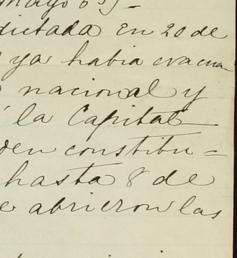 mayo 63)-
dictada en 20 de
ya habia evacua-
nacional y
la Capital
den constitu-
hasta 8 de
e abrieron las